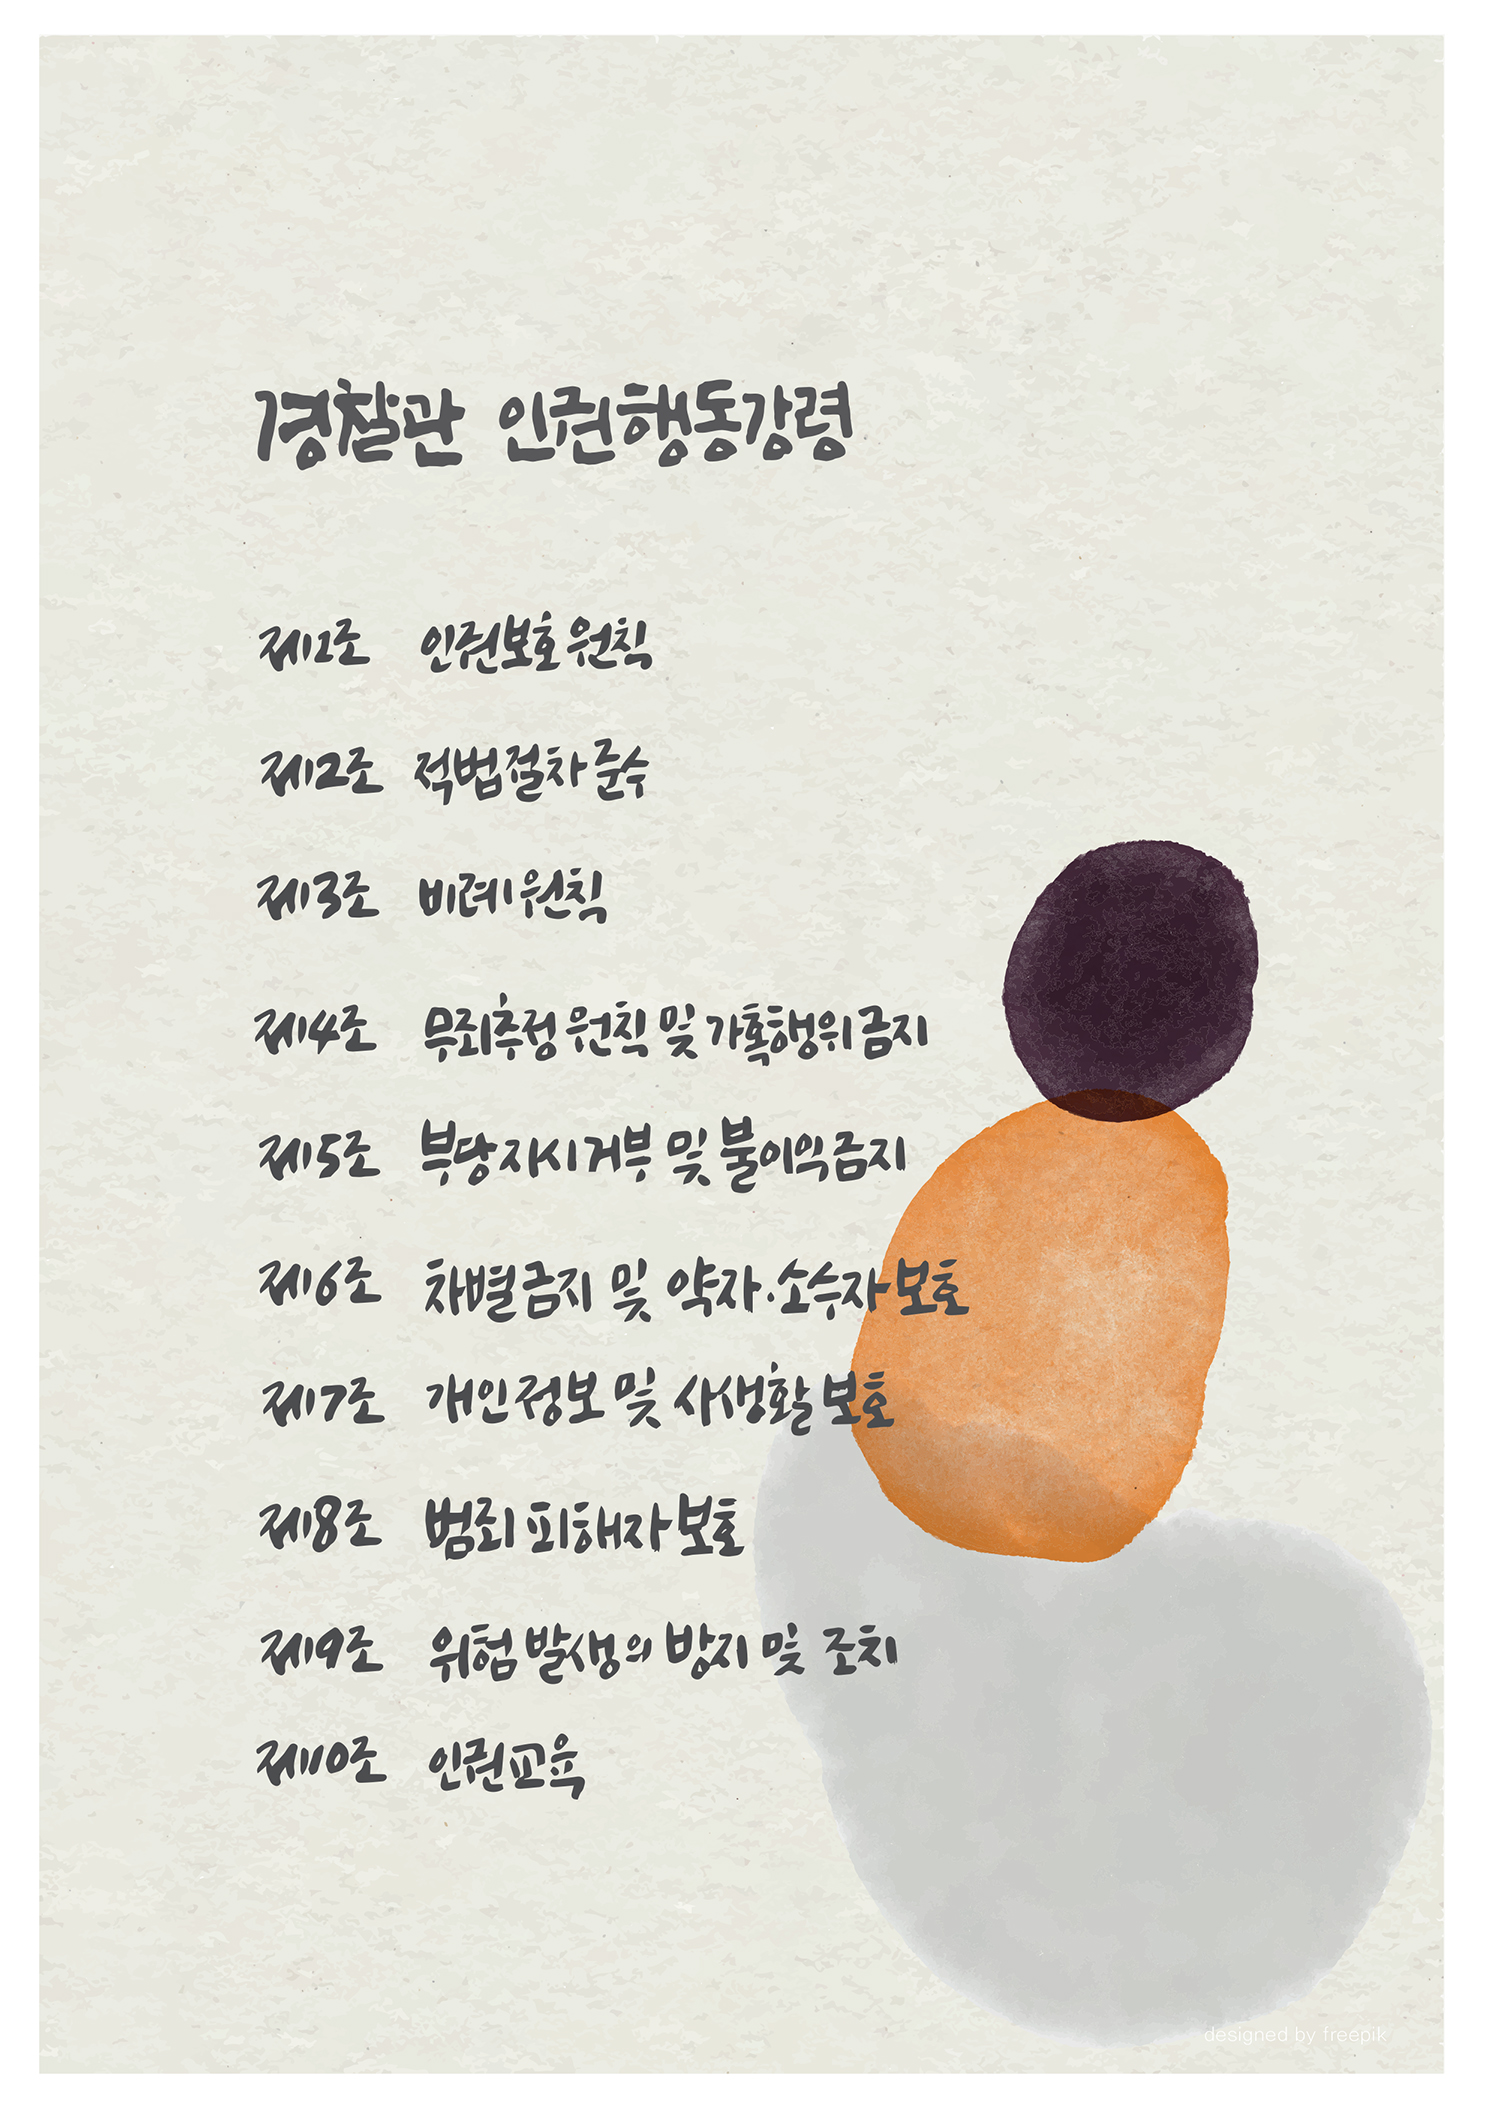 경찰관 인권행동강령
제1조 인권보호 원칙
제2조 적법절차 준수
제3조 비례 원칙
제4조 무죄추정 원칙 및 가혹행위 금지
제5조 부당 지시 거부 및 불이익 금지
제6조 차별 금지 및 약자·소수자 보호
제7조 개인 정보 및 사생활 보호
제8조 범죄 피해자 보호
제9조 위험 발생의 방지 및 조치
제10조 인권교육
designed by freepik